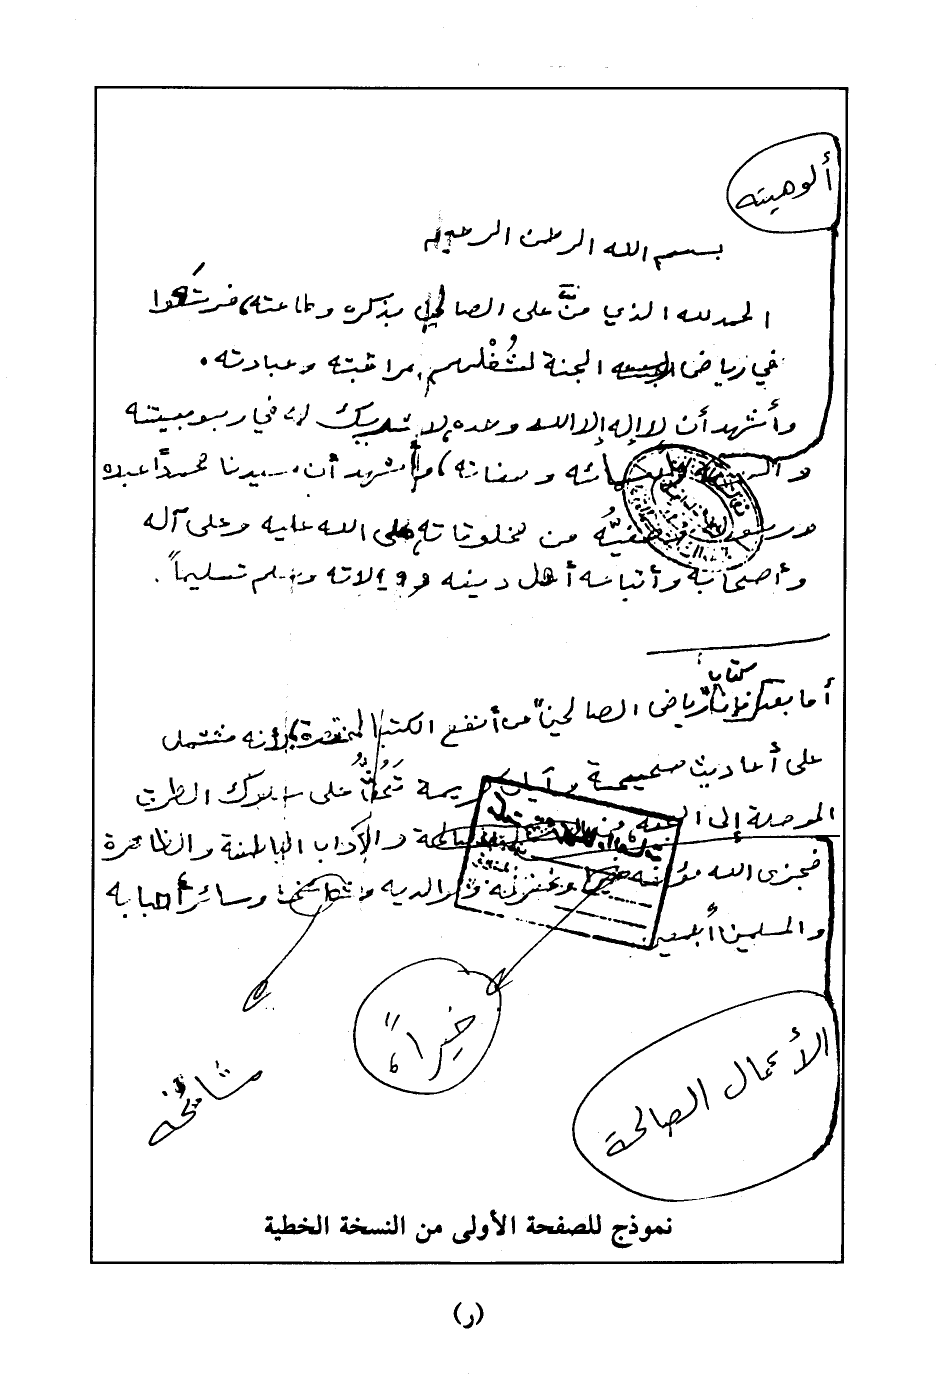 ألوهيته
بسم الله الرحمن الرحيم
الحمد لله الذي منَّ على الصالحين بذكره وطاعته، فرتعوا
في رياض الجنة لشُغْلهم بمراقبته وعبادته.
وأشهد أن لا إله إلا الله وحده لا شريك له في ربوبيته
وأسمائه وصفاته، وأشهد أن سيدنا محمداً عبده
ورسوله وصفيُّه من مخلوقاته صلى الله عليه وعلى آله
وأصحابه وأتباعه أهل دينه وولاته وسلم تسليماً.
كتاب
أما بعد فإن "رياض الصالحين" من أنفع الكتب المختصرة لأنه مشتمل
على أحاديث صحيحة وآيات كريمة تَحُثُّ على سلوك الطرق
الموصلة إلى الجنة والآداب الباطنة والظاهرة
فجزى الله مؤلفه خيراً وغفر له ولوالديه ومشايخه وسائر أحبابه
والمسلمين أجمعين.
خيراً،
مشايخه
الأعمال الصالحة
نموذج للصفحة الأولى من النسخة الخطية
(ر)